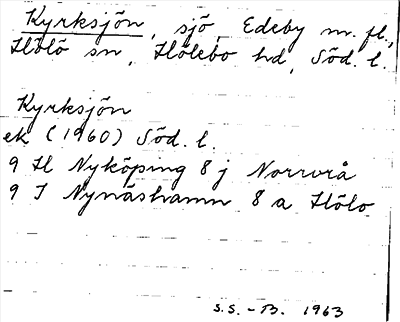 Kyrksjön, sjö, Edeby m. fl.,
Hölö sn, Hölebo hd, Söd. l.
Kyrksjön
ek (1960) Söd. l.
9 H Nyköping 8 j Norrvrå
9 I Nynäshamn 8 a Hölö
S.S. - B. 1963